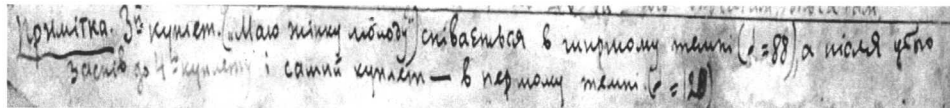 Примітка. 3й куплет („Маю жінку молоду") співається в ширшому темпі (♩=88), а після убго
заспів до 4го куплету і самий куплет — в первому темпі (♩=120)